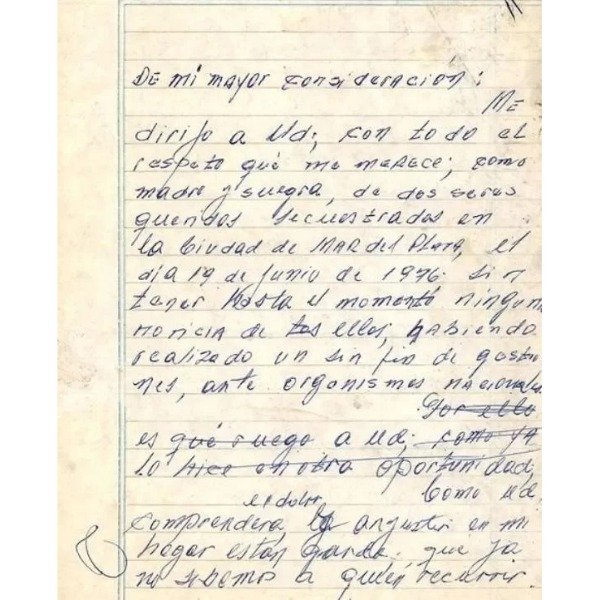 De mi mayor consideracion:
Me
dirijo a Ud; con todo el
respeto que me merece; como
madre y suegra, de dos seres
queridos secuestrados en
la Ciudad de Mar del Plata, el
dia 19 de Junio de 1976. sin
tener hasta el momento ninguna
noticia de ellos, habiendo
realizado un sin fin de gestio
nes, ante organismos nacionales.
Por ello
es que ruego a Ud; como ya
lo hice en otra oportunidad,
Como Ud.
el dolor
comprendera, la angustia en mi
hogar es tan grande, que ya
no sabemos a quien recurrir.